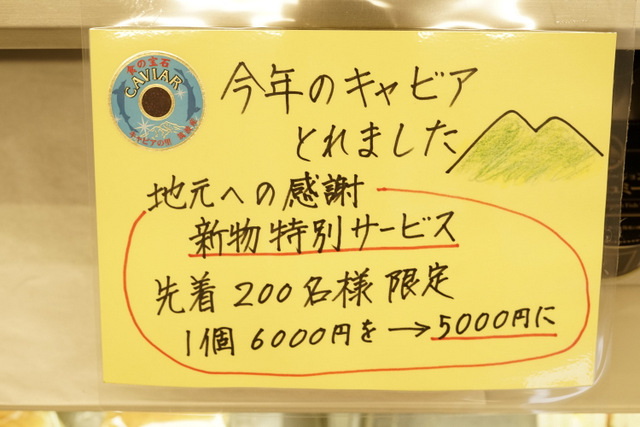 食の宝石
CAVIAR
キャビアの里
今年のキャビア
とれました
地元への感謝
新物特別サービス
先着 200名様 限定
1個 6000円を→5000円に